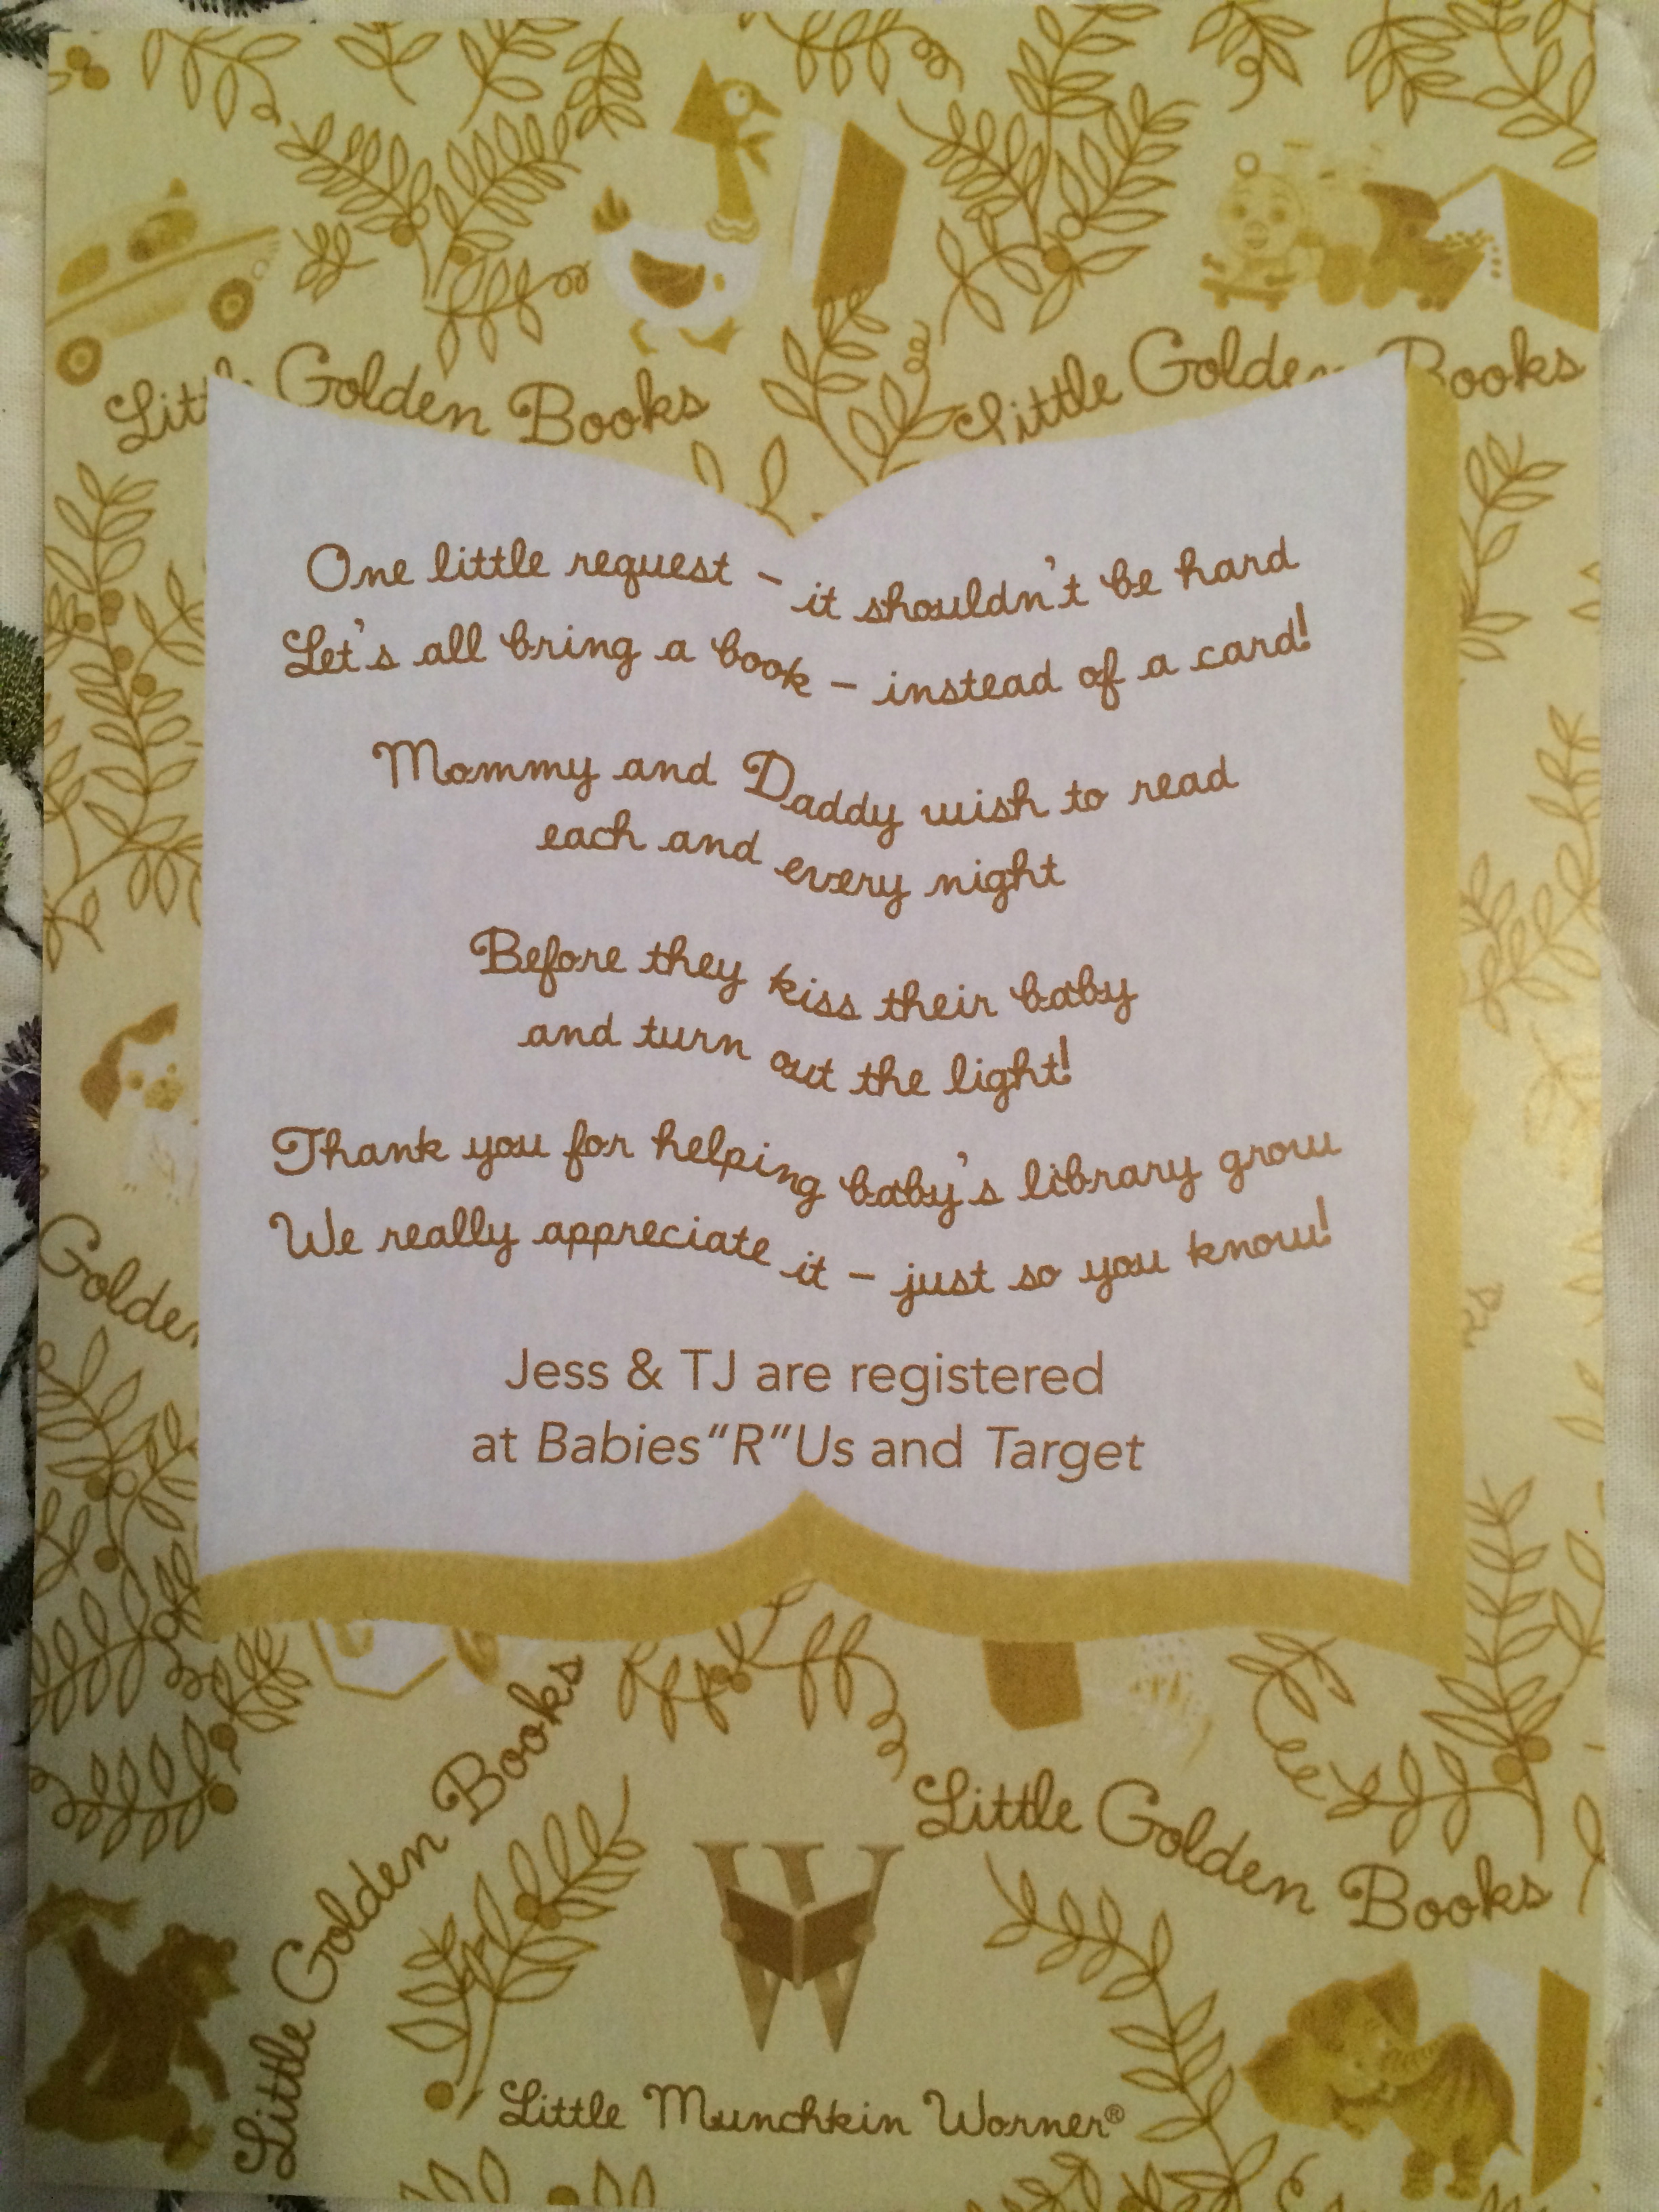 Little Golden Books
Little Golden Books
One little request - it shouldn't be hard
Let's all bring a book - instead of a card!
Mommy and Daddy wish to read
each and every night
Before they kiss their baby
and turn out the light!
Thank you for helping baby's library grow
We really appreciate it - just so you know!
Golden
Jess & TJ are registered
at Babies"R"Us and Target
Little Golden Books
Little Golden Books
W
Little Munchkin Worner®